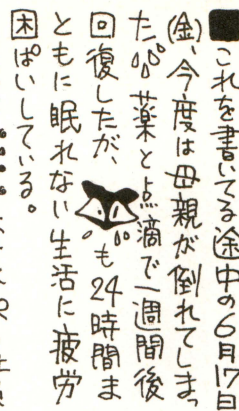 これを書いてる途中の6月17日
(金)、今度は母親が倒れてしまっ
た💦薬と点滴で一週間後
回復したが、も24時間ま
ともに眠れない生活に疲労
困ぱいしている。